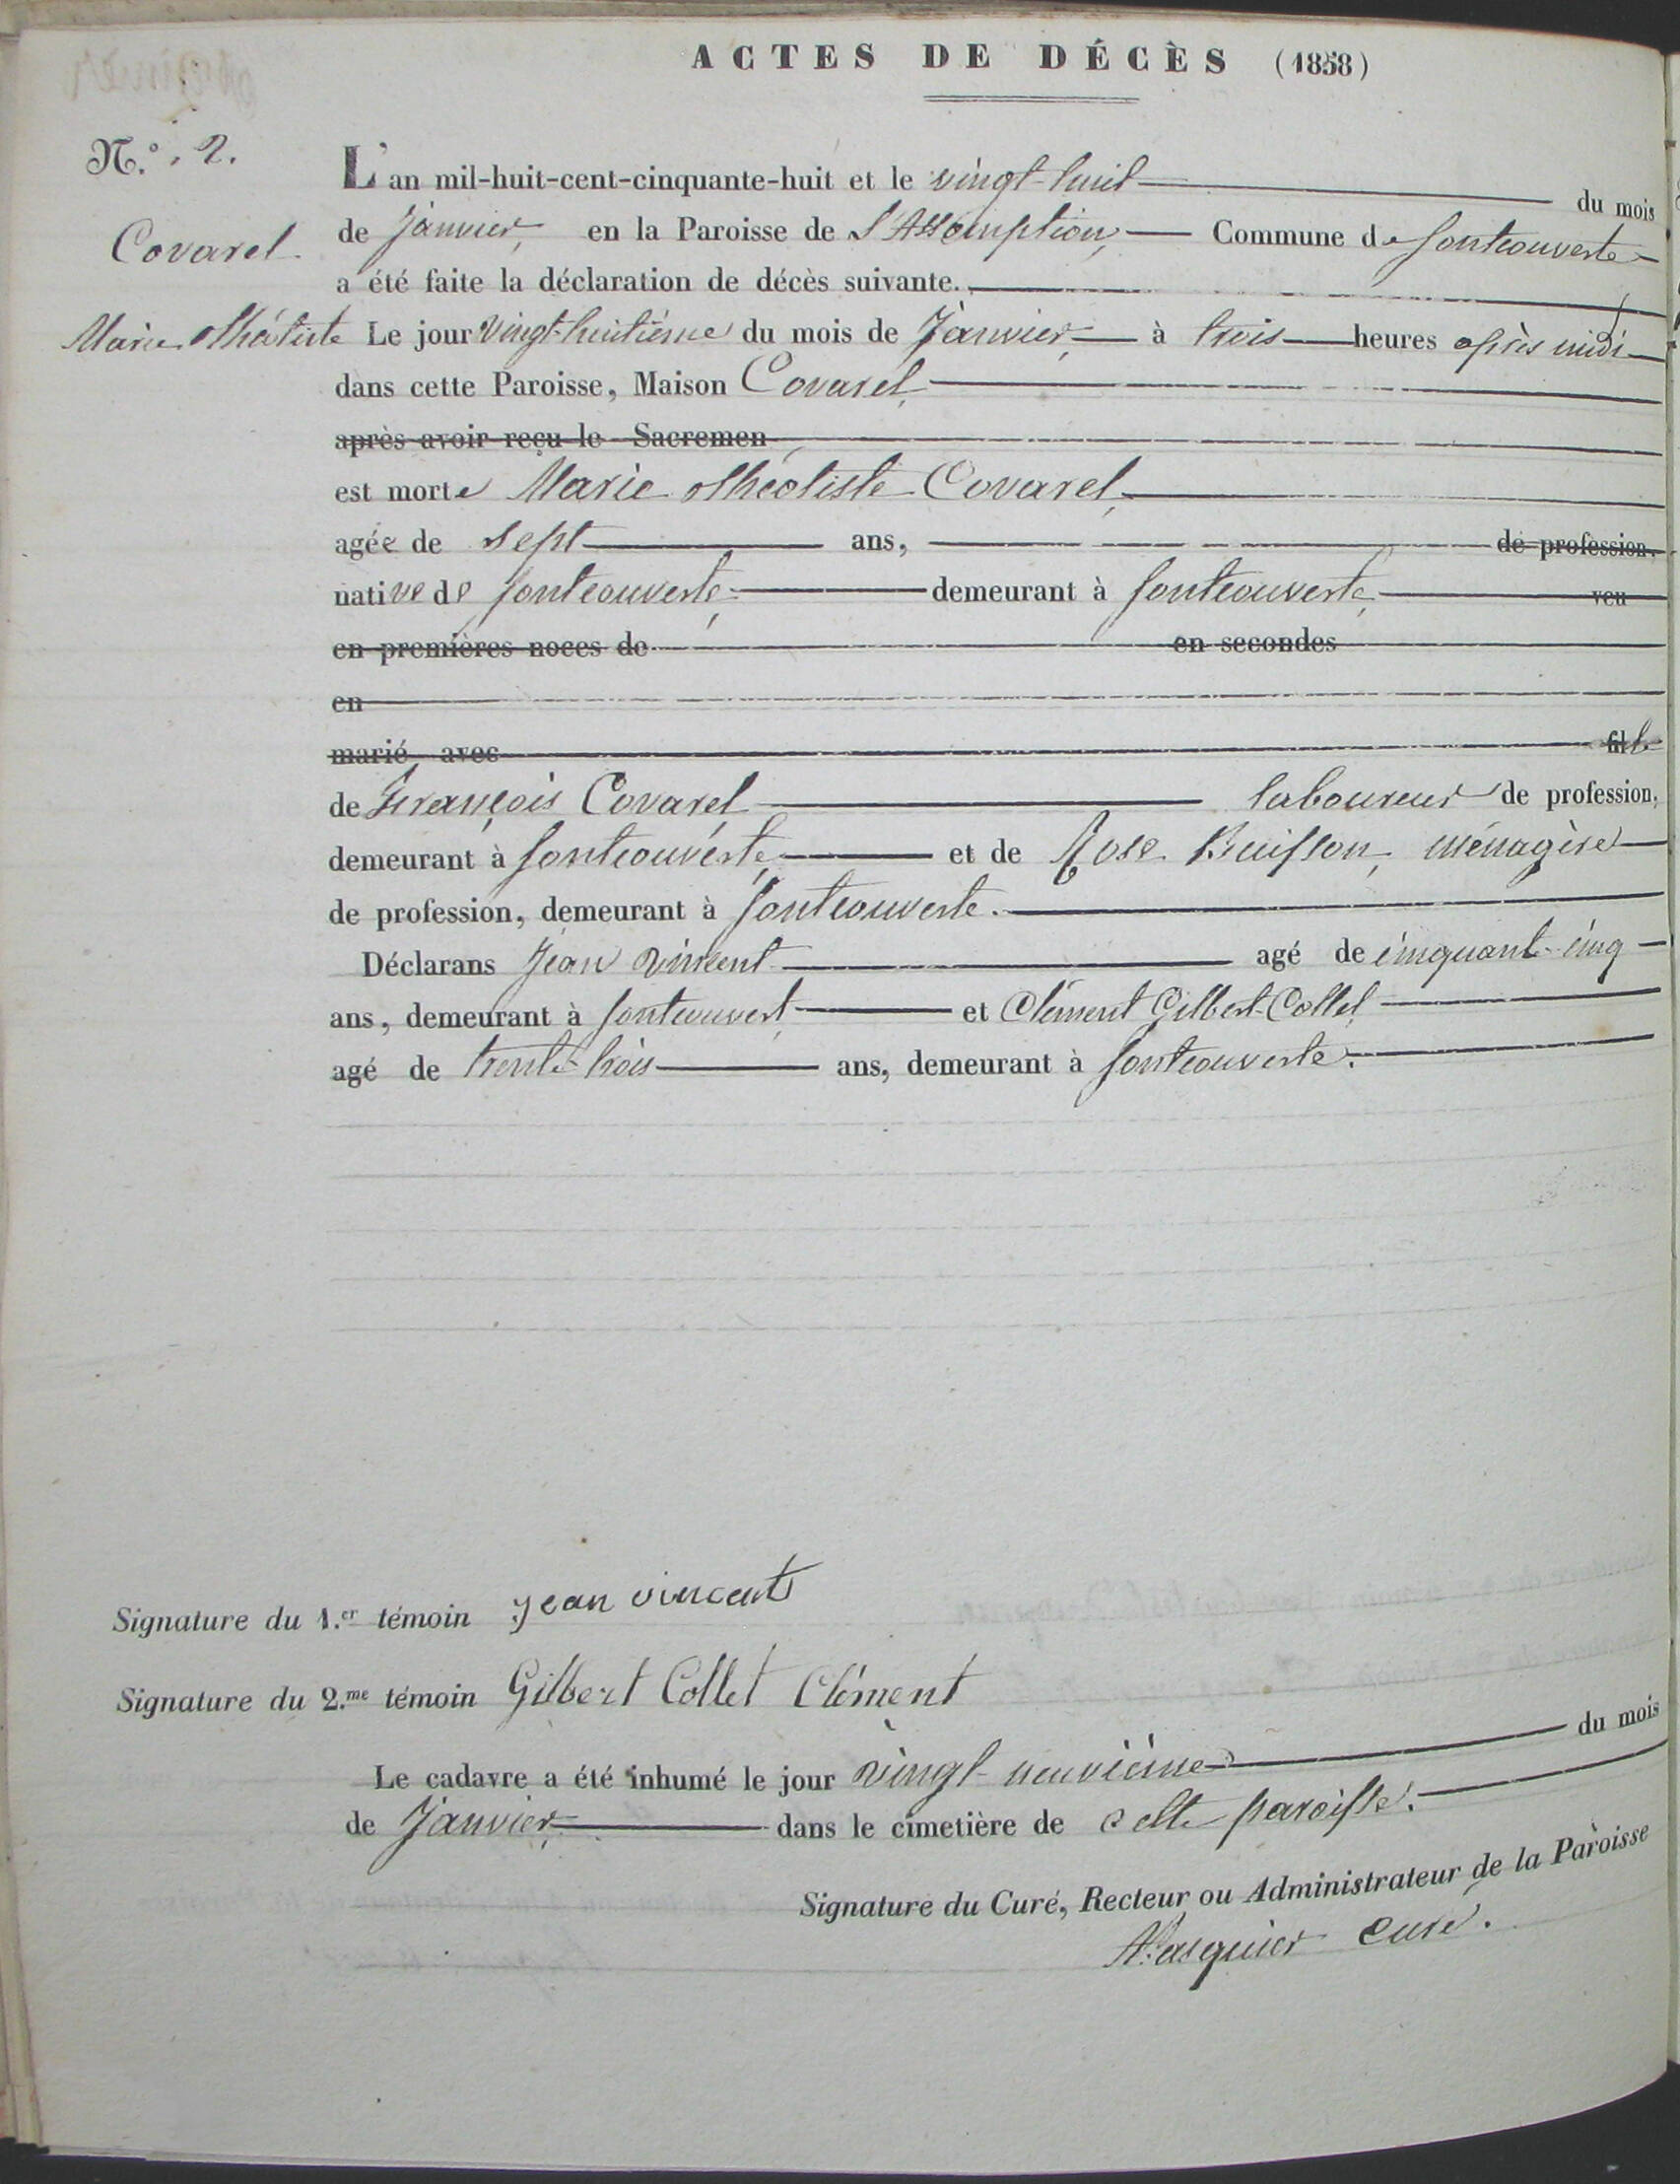 ACTES DE DÉCÈS (1858)
N.° 2.
L'an mil-huit-cent-cinquante-huit et le vingt-huit du mois
Covarel
de Janvier, en la Paroisse de l'Assomption, Commune de fontcouverte
a été faite la déclaration de décès suivante.
Marie Théotiste
Le jour vingt-huitième du mois de Janvier à trois heures après midi
dans cette Paroisse, Maison Covarel
après avoir reçu le Sacremen
est morte Marie Théotiste Covarel,
agée de sept ans, de profession.
native de fontcouverte, demeurant à fontcouverte, veu
en premières noces de en secondes
en
marié avec fille
de François Covarel laboureur de profession,
demeurant à fontcouverte, et de Rose Buisson, ménagère
de profession, demeurant à fontcouverte.
Déclarans Jean vincent agé de cinquante-cinq
ans, demeurant à fontcouvert et Clément Gilbert-Collet
agé de trente-trois ans, demeurant à fontcouverte.
Signature du 1.er témoin jean vincent
Signature du 2.me témoin Gilbert Collet Clément
Le cadavre a été inhumé le jour vingt-neuvième du mois
de Janvier dans le cimetière de cette paroisse.
Signature du Curé, Recteur ou Administrateur de la Paroisse
Pasquier curé.